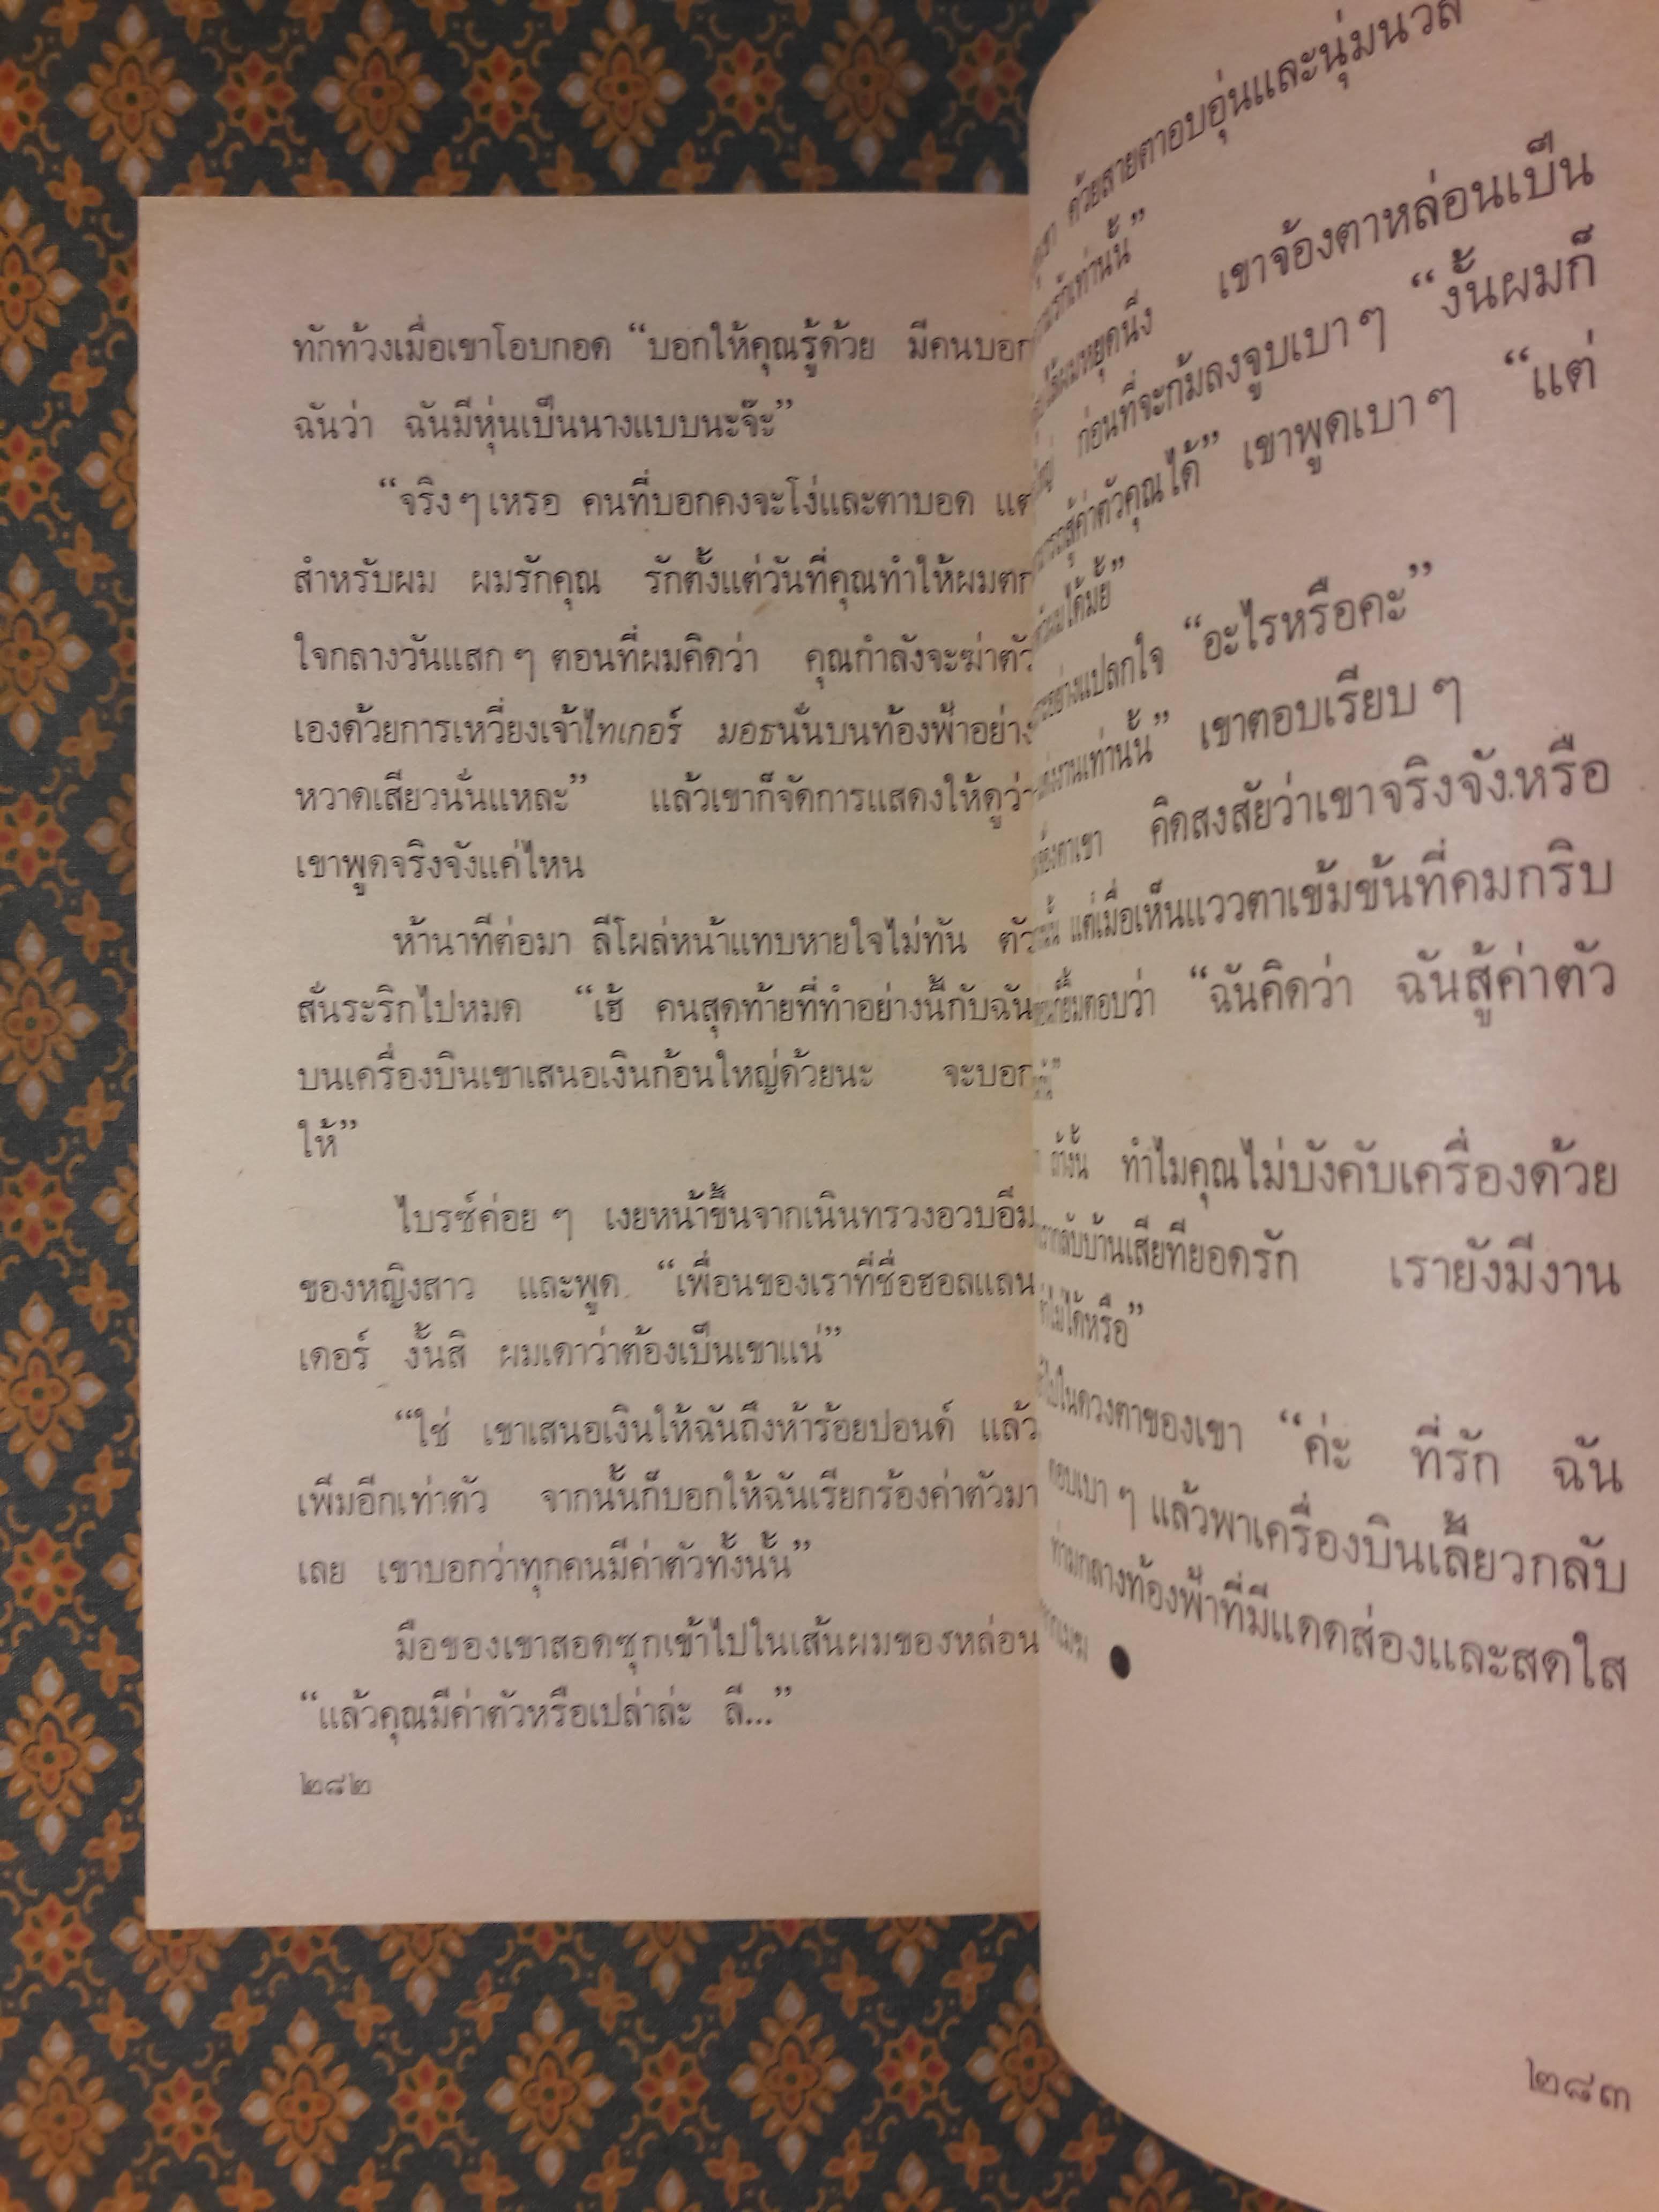 ทักท้วงเมื่อเขาโอบกอด “บอกให้คุณรู้ด้วย มีคนบอก
ฉันว่า ฉันมีหุ่นเป็นนางแบบนะจ๊ะ”
“จริง ๆ เหรอ คนที่บอกคงจะโง่และตาบอด แต่
สำหรับผม ผมรักคุณ รักตั้งแต่วันที่คุณทำให้ผมตก
ใจกลางวันแสก ๆ ตอนที่ผมคิดว่า คุณกำลังจะฆ่าตัว
เองด้วยการเหวี่ยงเจ้าไทเกอร์ มอธนั่นบนท้องฟ้าอย่าง
หวาดเสียวนั่นแหละ” แล้วเขาก็จัดการแสดงให้ดูว่า
เขาพูดจริงจังแค่ไหน
ห้านาทีต่อมา ลีโผล่หน้าแทบหายใจไม่ทัน ตัว
สั่นระริกไปหมด “เฮ้ คนสุดท้ายที่ทำอย่างนี้กับฉัน
บนเครื่องบินเขาเสนอเงินก้อนใหญ่ด้วยนะ จะบอก
ให้”
ไบรซ์ค่อย ๆ เงยหน้าขึ้นจากเนินทรวงอวบอิ่ม
ของหญิงสาว และพูด “เพื่อนของเราที่ชื่อฮอลแลน
เดอร์ งั้นสิ ผมเดาว่าต้องเป็นเขาแน่”
“ใช่ เขาเสนอเงินให้ฉันถึงห้าร้อยปอนด์ แล้ว
เพิ่มอีกเท่าตัว จากนั้นก็บอกให้ฉันเรียกร้องค่าตัวมา
เลย เขาบอกว่าทุกคนมีค่าตัวทั้งนั้น”
มือของเขาสอดซุกเข้าไปในเส้นผมของหล่อน
“แล้วคุณมีค่าตัวหรือเปล่าล่ะ ลี...”
๒๘๒
ด้วยสายตาอบอุ่นและนุ่มนวล
เท่านั้น”
ผมหยุดนิ่ง เขาจ้องตาหล่อนเป็น
ก่อนที่จะก้มลงจูบเบา ๆ “งั้นผมก็
สู้ค่าตัวคุณได้” เขาพูดเบา ๆ “แต่
ได้มั้ย”
อย่างแปลกใจ “อะไรหรือคะ”
งานเท่านั้น” เขาตอบเรียบ ๆ
ตาเขา คิดสงสัยว่าเขาจริงจังหรือ
แต่เมื่อเห็นแววตาเข้มข้นที่คมกริบ
ยิ้มตอบว่า “ฉันคิดว่า ฉันสู้ค่าตัว
ถ้างั้น ทำไมคุณไม่บังคับเครื่องด้วย
กลับบ้านเสียทียอดรัก เรายังมีงาน
ไม่ได้หรือ”
ไปในดวงตาของเขา “ค่ะ ที่รัก ฉัน
ตอบเบา ๆ แล้วพาเครื่องบินเลี้ยวกลับ
ท่ามกลางท้องฟ้าที่มีแดดส่องและสดใส
๒๘๓